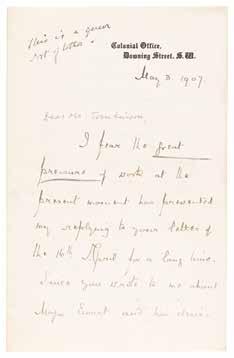 This is a queer
sort of letter.
Colonial Office,
Downing Street, S.W.
May 3. 1907.
Dear Mr
I fear the great
pressure of work at the
present moment has prevented
my replying to your letter of
the 16th April for a long time.
Since you wrote to me about
Major and his